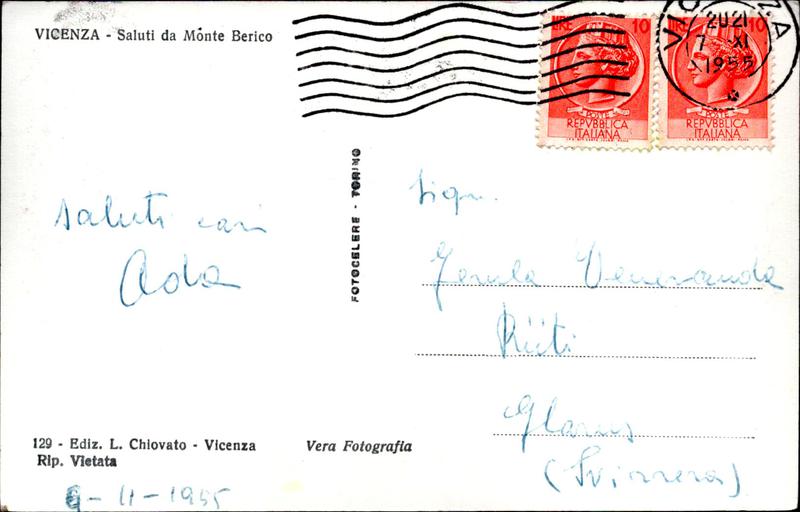 VICENZA - Saluti da Monte Berico
LIRE 10
POSTE
REPVBBLICA
ITALIANA
LIRE 10
POSTE
REPVBBLICA
ITALIANA
20 21
7 XI
1955
FOTOCELERE - TORINO
saluti cari
Ada
Sign.
Veneranda
Rüti
Glarus
(Svizzera)
129 - Ediz. L. Chiovato - Vicenza
Rip. Vietata
Vera Fotografia
- 11 - 1955